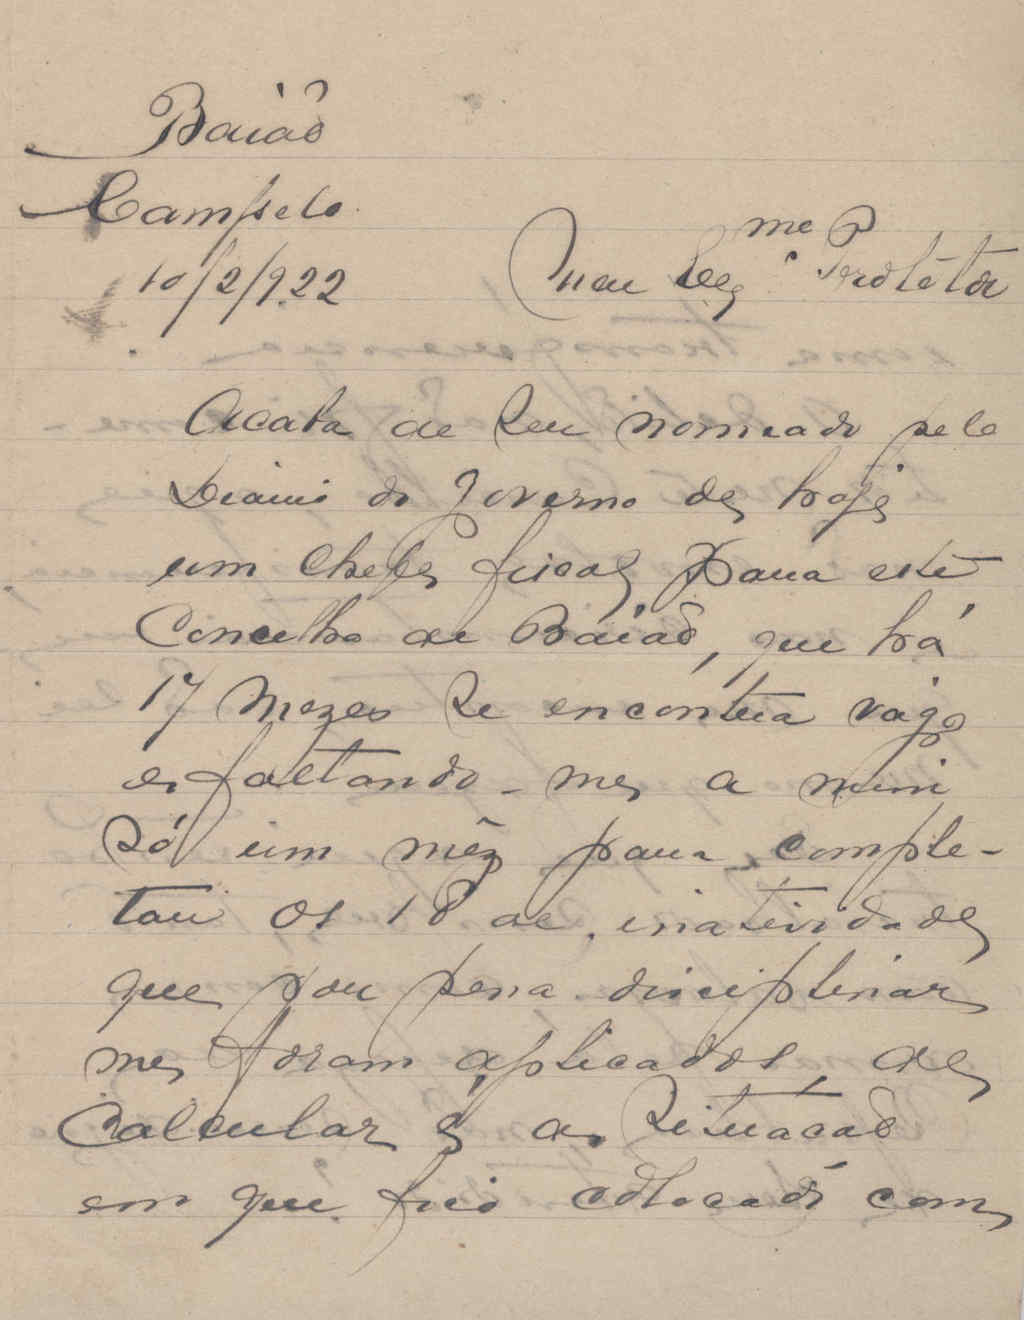 Baião
Campelo
10/2/922
Meu Exmo Protetor
Acaba de ser nomeado pelo
Diario do Governo de hoje
um chefe fiscal para este
Concelho de Baião, que há
17 mezes se encontra vágo
e faltando-me a mim
só um mêz para comple-
tar os 18 de inatividade
que por pena disciplinar
me foram aplicados de
calcular é a situacão
em que fico colocado com